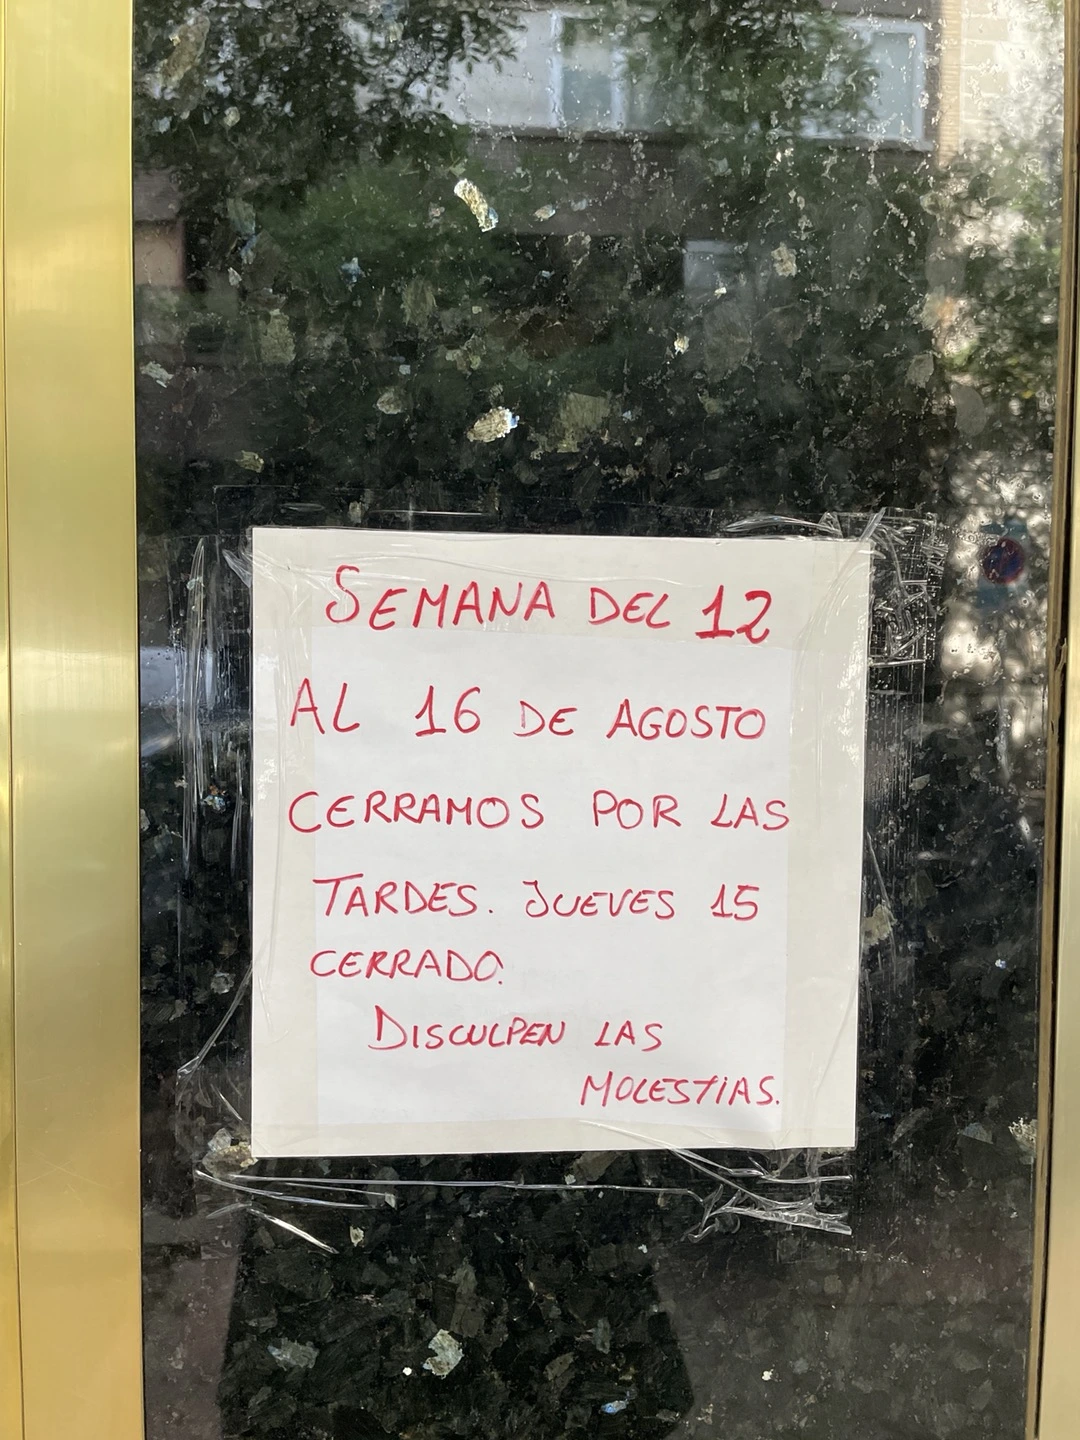 SEMANA DEL 12
AL 16 DE AGOSTO
CERRAMOS POR LAS
TARDES. JUEVES 15
CERRADO.
DISCULPEN LAS
MOLESTIAS.